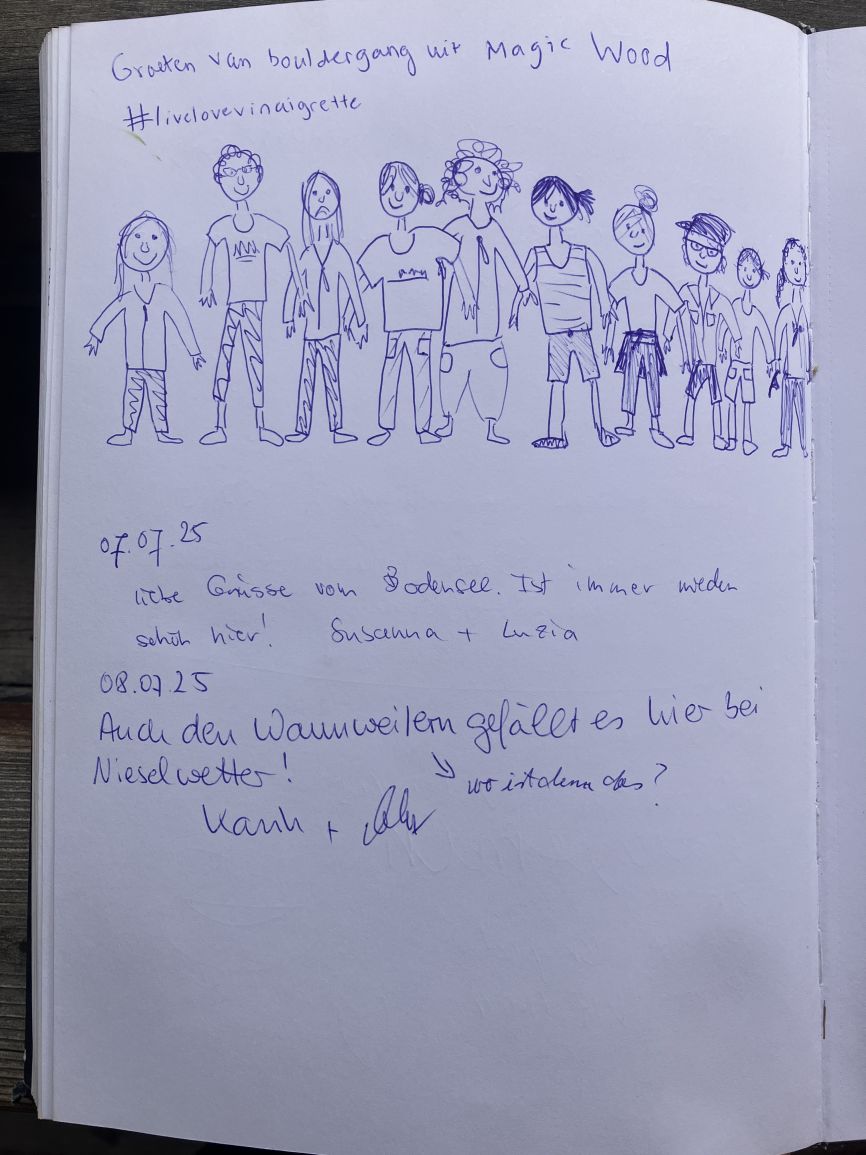 Groeten van bouldergang uit Magic Wood
#livelovevinaigrette
07.07.25
liebe Grüsse vom Bodensee. Ist immer wieder
schön hier! Susanna + Luzia
08.07.25
Auch den Wannweilern gefällt es hier bei
Nieselwetter!
wo ist denn das?
+